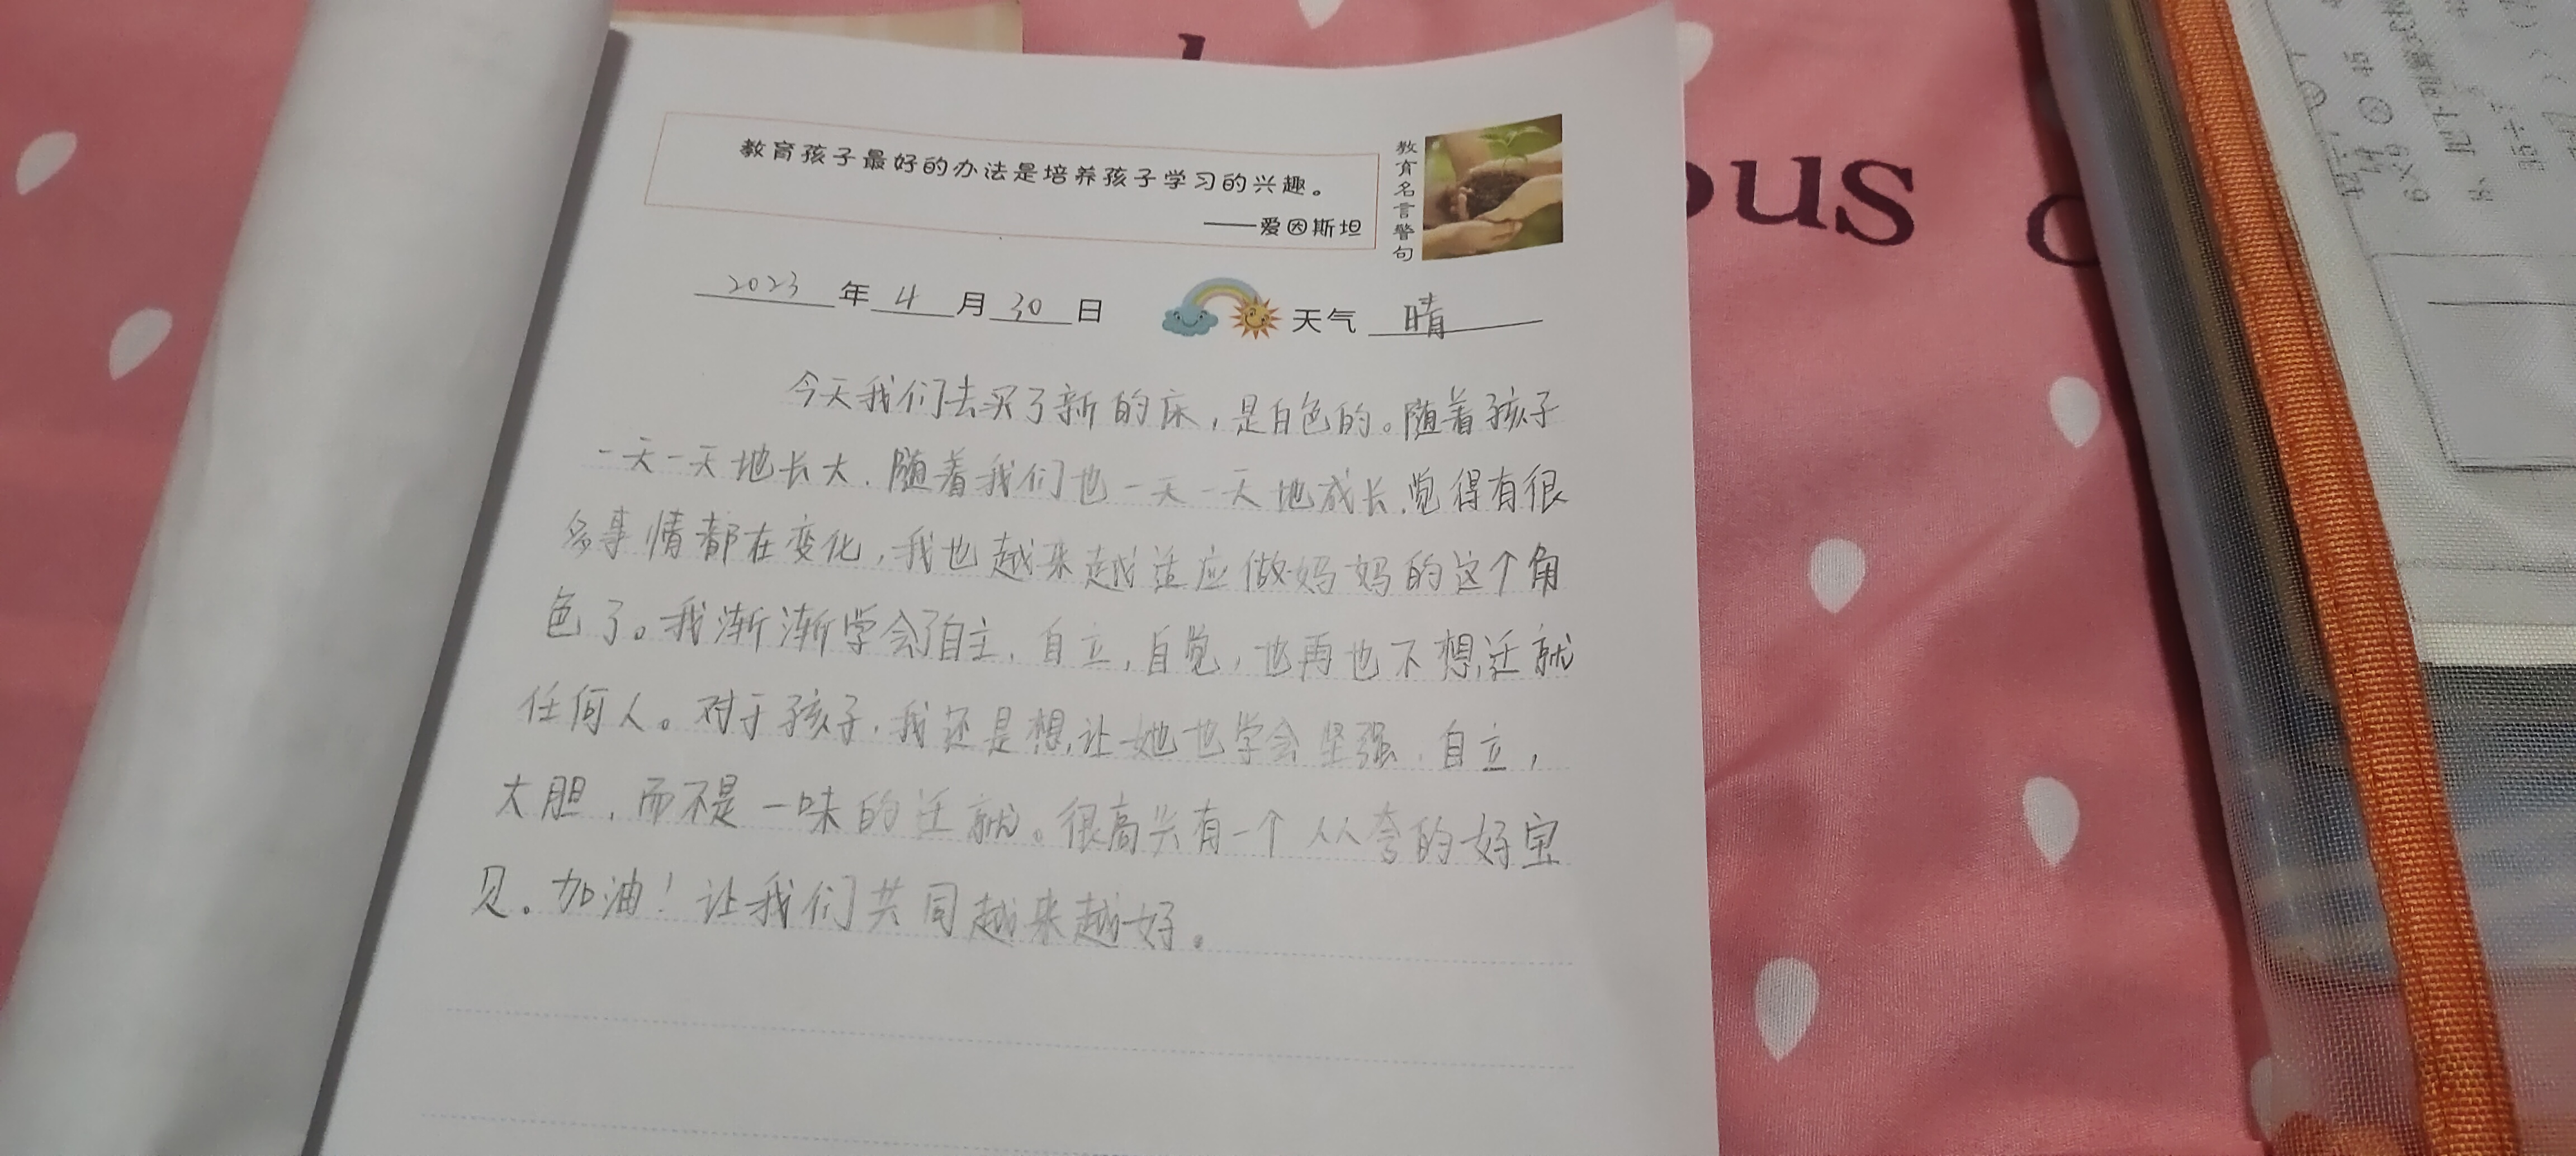 教育孩子最好的办法是培养孩子学习的兴趣。
——爱因斯坦
教育名言警句
2023年4月30日 天气 晴
今天我们去买了新的床，是白色的。随着孩子
一天一天地长大，随着我们也一天一天地成长，觉得有很
多事情都在变化，我也越来越适应做妈妈的这个角
色了。我渐渐学会了自主，自立，自觉，也再也不想迁就
任何人。对于孩子，我还是想让她也学会坚强，自立，
大胆，而不是一味的迁就。很高兴有一个人人夸的好宝
贝。加油！让我们共同越来越好。
ous